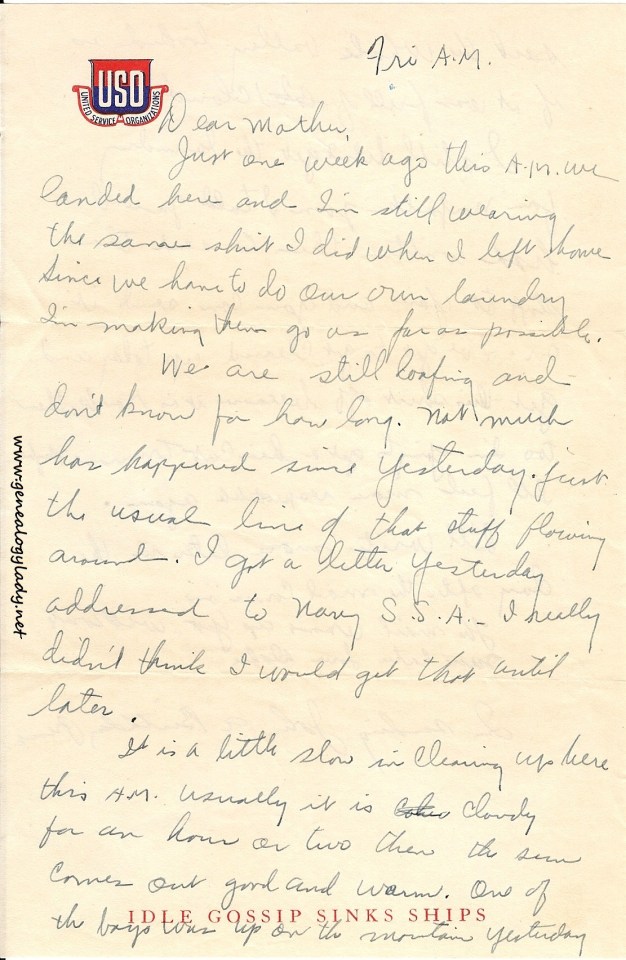 Fri A.M.
USO
UNITED SERVICE ORGANIZATIONS
Dear Mother,
Just one week ago this A.M. we
landed here and I'm still wearing
the same shirt I did when I left home
Since we have to do our own laundry
I'm making them go as far as possible.
We are still loafing and
don't know for how long. Not much
has happened since yesterday. just
the usual line of that stuff flowing
around. I got a letter yesterday
addressed to Navy S.S.A- I really
didn't think I would get that until
later.
It is a little slow in clearing up here
this A.M. usually it is cloudy
for an hour or two then the sun
comes out good and warm. One of
IDLE GOSSIP SINKS SHIPS
the boys was up on the mountain yesterday
www.genealogylady.net